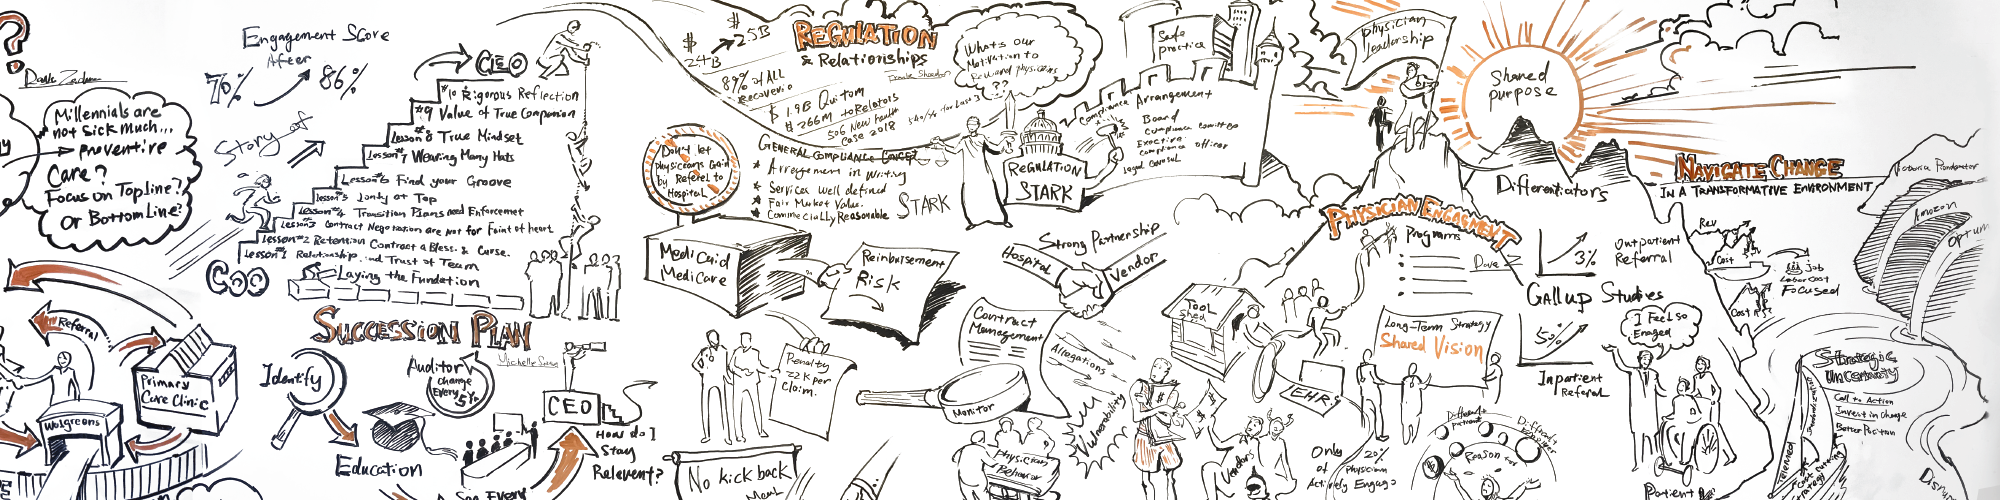 ?
Millennials are
not sick much...
preventive
Care?
Focus on Top Line?
Or Bottom Line?
Engagement Score
After
76%
86%
Story of
CEO
#10 Rigorous Reflection
#9 Value of True Companion
Lesson #8 True Mindset
Lesson #7 Wearing Many Hats
Lesson #6 Find your Groove
Lesson #5 Lonly at Top
Lesson #4 Transition Plans need Enforcemet
Lesson #3 Contract Negotation are not for Faint of heart
Lesson #2 Retention Contract a Bless. & Curse.
Lesson #1 Relationship and Trust of Team
Laying the Fundation
COO
Succession Plan
Michelle
Referral
Primary
Care Clinic
Walgreens
Identify
Education
Auditor
Change
Every
5 Yr
CEO
How do I
Stay
Relevent?
See Every
$
2.4B
$
2.5B
Regulation
& Relationships
89% of ALL
$ 1.9B Quitam
$ 266M to Relators
506 New health
Case 2018
What's our
Motivation to
Reward physicians
??
Don't let
physicians Gain
by Referel to
Hospital
General Compliance
* Arregement in Writing
* Services Well defined
* Fair Market Value.
* Commercially Reasonable
STARK
REGULATION
STARK
Safe
practice
Compliance
Arrangement
Board
Compliance Committee
Executive
Compliance officer
legal
Medicaid
Medicare
Reinbursement
Risk
Strong Partnership
Hospital
Vendor
Contract
Management
Allegations
Penalty
22K per
Claim.
Monitor
Vulnerability
No kick back
Physician
Behavior
Physician
Leadership
Shared
purpose
Differentiators
Physician Engagement
Programs
Dave
Tool
Shed
EHR
Vendors
Long-Term Strategy
Shared Vision
Only
20%
of Physician
Actively Engage
Different
Different
Reason for
3%
Outpatient
Referral
Gallup Studies
50%
Inpatient
Referal
I Feel so
Enaged
Patient
Navigate Change
In a Transformative Environment
Rev
Cost
Job
Labor cost
Focused
Cost
Amazon
Optum
Strategic
Uncertainty
Call to Action
Invest in Change
Better Position
Telemed